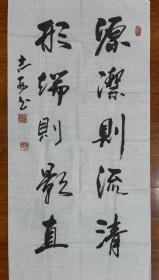 源潔則流清
形端則影直